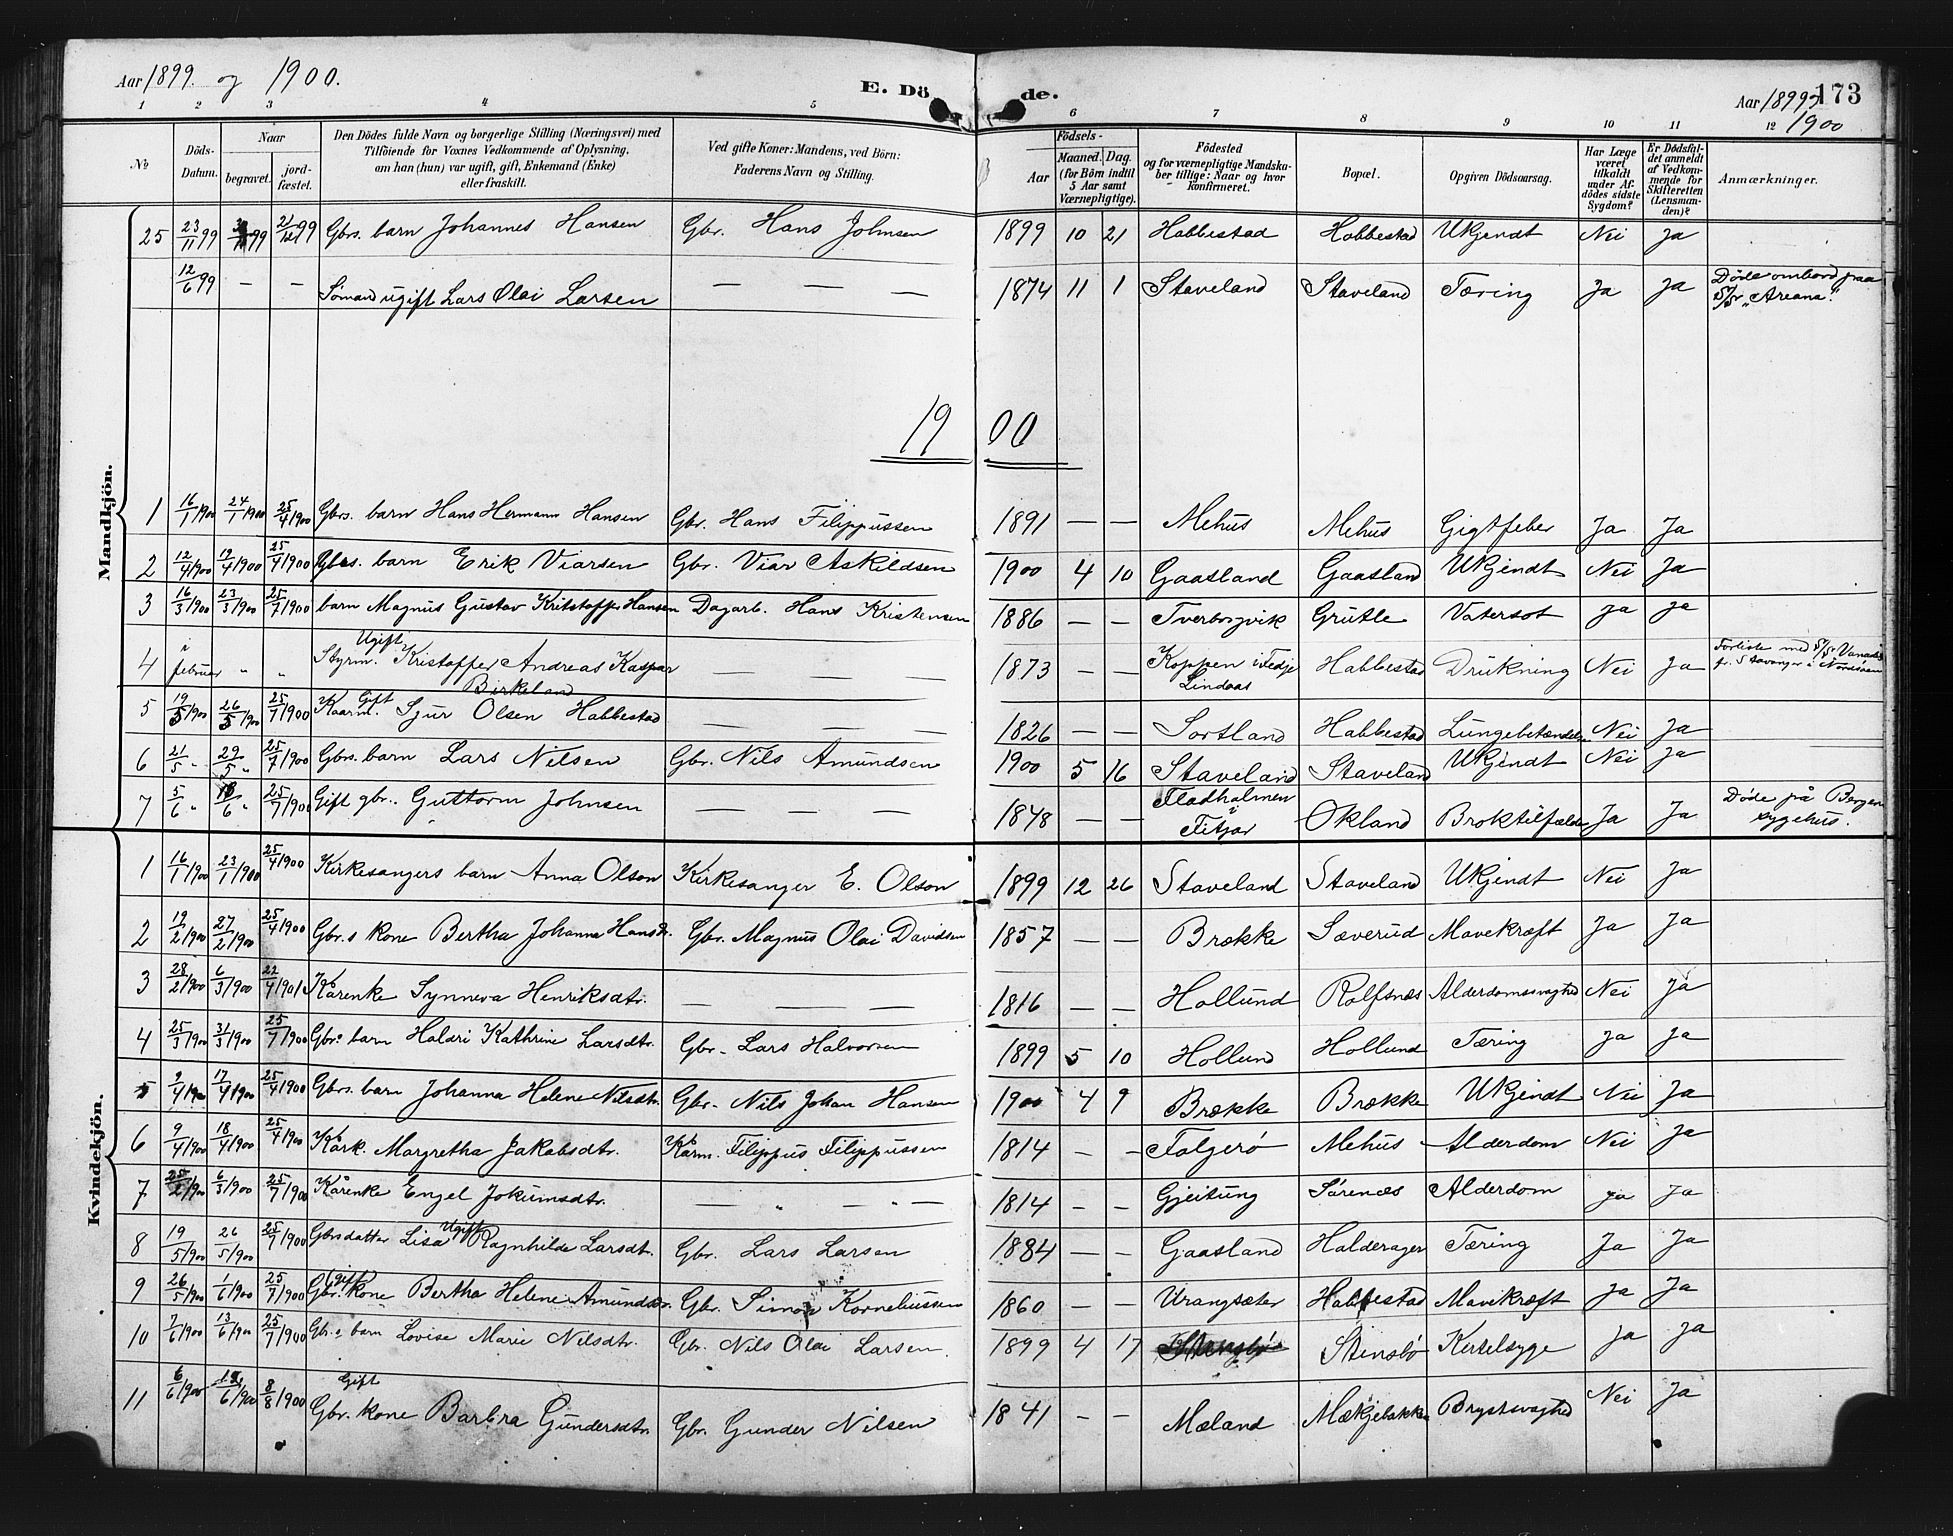 Aar 1899. og 1900.
E. Dö de.
Aar 1899 1900
173
1 2 3 4 5 6 7 8 9 10 11 12
No
Döds-Datum.
Naar
begravet.
jord-fæstet.
Den Dödes fulde Navn og borgerlige Stilling (Næringsvei) med
Tilföiende for Voxnes Vedkommende af Oplysning,
om han (hun) var ugift, gift, Enkemand (Enke)
eller fraskilt.
Ved gifte Koner: Mandens, ved Börn:
Faderens Navn og Stilling.
Födsels-
Aar
Maaned. Dag.
(for Börn indtil
5 Aar samt
Værnepligtige).
Födested
og for værnepligtige Mandska-
ber tillige: Naar og hvor
konfirmeret.
Bopæl.
Opgiven Dödsaarsag.
Har Læge
været
tilkaldt
under Af-
dödes sidste
Sygdom?
Er Dödsfal-
det anmeldt
af Vedkom-
mende for
Skifteretten
(Lensman-
den)?
Anmærkninger.
25 23/11 99 21/12 99 Gbrs. barn Johannes Hansen Gbr. Hans Johnsen 1899 10 21 Habbestad Habbestad Ukjendt Nei Ja
12/6 99 — — Sömand ugift Lars Olai Larsen — — — 1874 11 1 Staveland Staveland Tæring Ja Ja Døde ombord paa
S/S "Areana."
1900
Mandkjön.
1 16/1 1900 24/1 1900 25/4 1900 Gbrs. barn Hans Hermann Hansen Gbr. Hans Filippussen 1891 — — Mehus Mehus Gigtfeber Ja Ja
2 12/4 1900 19/4 1900 25/4 1900 Gbrs. barn Erik Viarsen Gbr. Viar Askildsen 1900 4 10 Gaasland Gaasland Ukjendt Nei Ja
3 16/3 1900 23/3 1900 25/7 1900 barn Magnus Gustav Kritstoffer Hansen Dagarb. Hans Kristensen 1886 — — Tverborgvik Grutle Vatersot Ja Ja
4 i februar " " Styrm. Ugift Kristoffer Andreas Kaspar
Birkeland — — — 1873 — — Koppen i Fedje
Lindaas Habbestad Drukning Nei Ja Forliste med S/S Vanadis
fr. Stavanger i Nordsøen
5 19/5 1900 26/5 1900 25/7 1900 Kaarm. Gift Sjur Olsen Habbestad — — — 1826 — — Sortland Habbestad Lungebetændelse Nei Ja
6 21/5 " 29/5 " 25/7 1900 Gbrs. barn Lars Nilsen Gbr. Nils Amundsen 1900 5 16 Staveland Staveland Ukjendt Nei Ja
7 5/6 " /6 " 25/7 1900 Gift gbr. Guttorm Johnsen — — — 1848 — — Fladholmen
i
Fitjar Økland Broktilfælde Ja Ja Døde på Bergen
sygehus.
Kvindekjön.
1 16/1 1900 23/1 1900 25/4 1900 Kirkesangers barn Anna Olson Kirkesanger E. Olson 1899 12 26 Staveland Staveland Ukjendt Nei Ja
2 19/2 1900 27/2 1900 25/4 1900 Gbr.s kone Bertha Johanna Hansdtr. Gbr. Magnus Olai Davidsen 1857 — — Brække Sæverud Mavekræft Ja Ja
3 28/2 1900 6/3 1900 22/4 1901 Kårenke Synneva Henriksdtr. — — — 1816 — — Hollund Rolfsnæs Alderdomssvaghed Nei Ja
4 25/3 1900 31/3 1900 25/7 1900 Gbrs barn Haldri Kathrine Larsdtr. Gbr. Lars Halvorsen 1899 5 10 Hollund Hollund Tæring Ja Ja
5 9/4 1900 17/4 1900 25/4 1900 Gbrs. barn Johanna Helene Nilsdtr. Gbr. Nils Johan Hansen 1900 4 9 Brække Brække Ukjendt Nei Ja
6 9/4 1900 18/4 1900 25/4 1900 Kårk. Margretha Jakobsdtr. Kårm. Filippus Filippussen 1814 — — Folgerø Mehus Alderdom Nei Ja
7 25/2 1900 6/3 1900 25/7 1900 Kårenke Engel Jokumsdtr. — " — " — 1814 — — Gjeitung Sørenæs Alderdom ja Ja
8 19/5 1900 26/5 1900 25/7 1900 Gbrs datter Ugift Lisa Ragnhilda Larsdtr. Gbr. Lars Larsen 1884 — — Gaasland Halderager Tæring Ja Ja
9 26/5 1900 1/6 1900 25/7 1900 Gbr. (gift) kone Bertha Helene Amundsdtr. Gbr. Simon Korneliussen 1860 — — Urangsæter Habbestad Mavekræft Ja Ja
10 7/6 1900 13/6 1900 25/7 1900 Gbr.s barn Lovise Marie Nilsdtr. Gbr. Nils Olai Larsen. 1899 4 17 Stensbø Stensbø Kertelsyge Ja Ja
11 6/6 1900 /6 1900 8/8 1900 Gift
Gbr. kone Barbra Gundersdtr. Gbr. Gunder Nilsen 1841 — — Mæland Mækjebakken Brystsvaghed Nei Ja